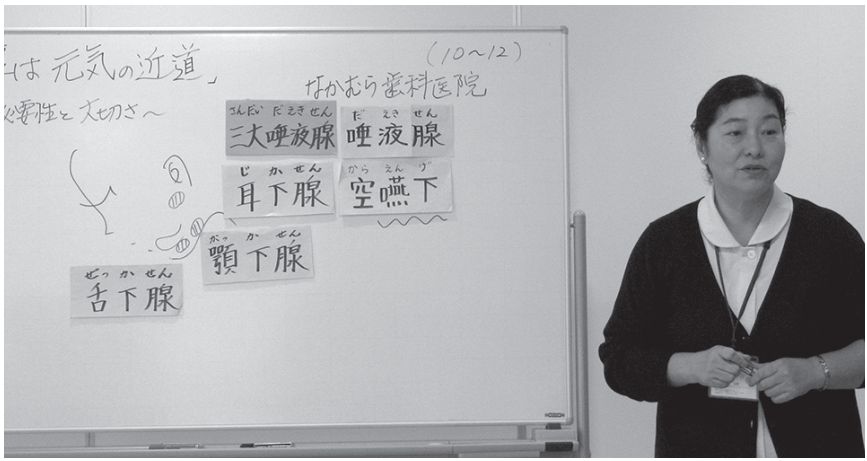 は 元気の近道」
(10～12)
なかむら歯科医院
必要性と大切さ～
さんだい だえきせん
三大唾液腺
だ えき せん
唾液腺
じ か せん
耳下腺
から えん げ
空嚥下
がっ か せん
顎下腺
ぜっ か せん
舌下腺